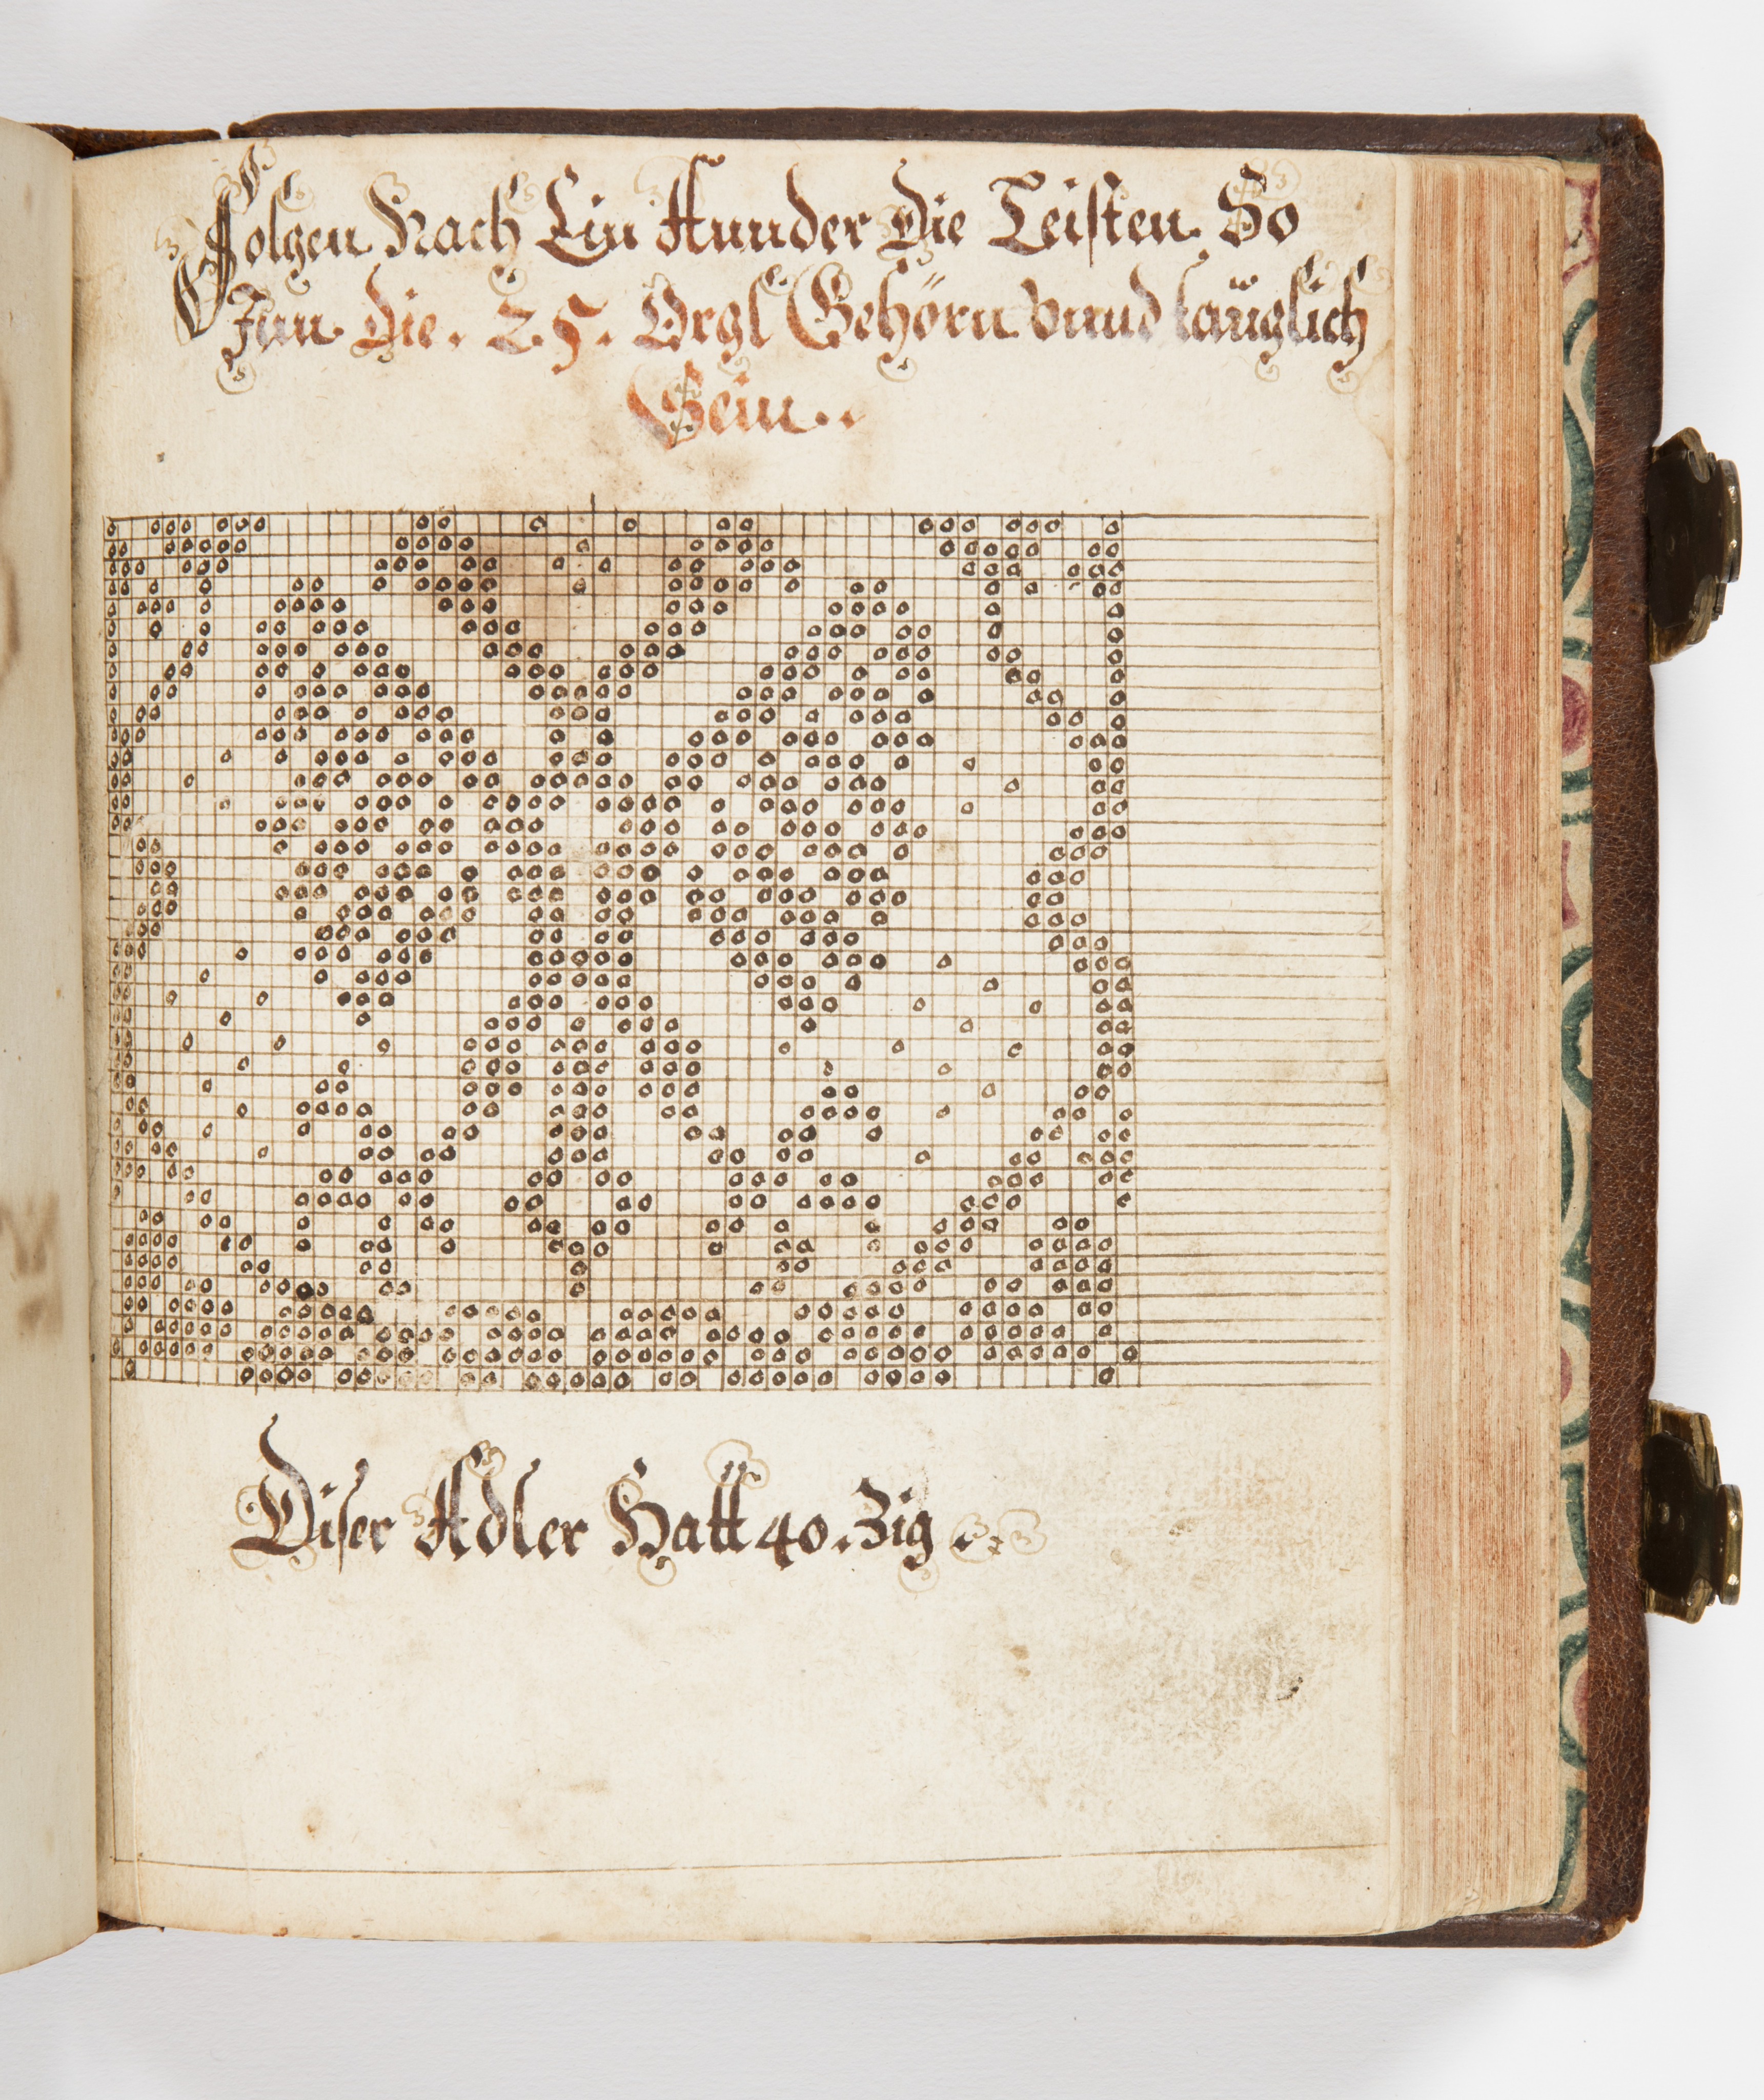 Folgen Nach Ein Hunder die Leisten So
Inn die. 25. Orgl Gehörn Vnnd taüglich
Sein..
Diser Adler Hatt 40. Zig.